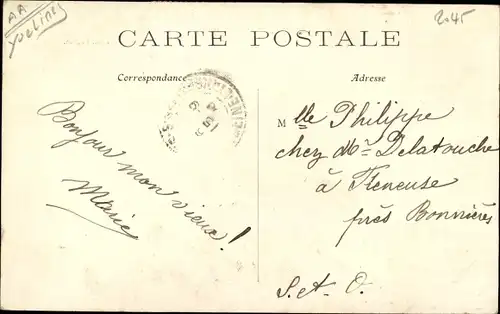 AA
Yvelines
2045
CARTE POSTALE
Correspondance
Adresse
Bonjour mon vieux!
Marie
Mlle Philippe
chez Mr Delatouche
à Freneuse
près Bonnières
S. et O.